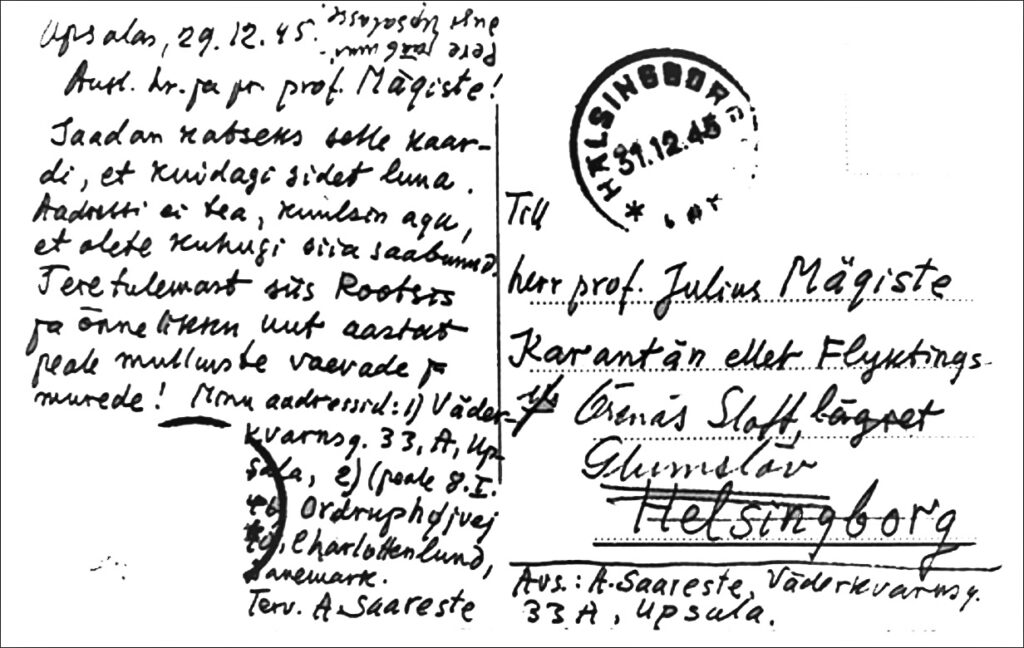 Upsalas, 29.12.45.
Aust. hr. ja pr. prof. Mägiste!
Saadan katseks selle kaar-
di, et kuidagi sidet luua.
Aadressi ei tea, kuulsin aga,
et olete kuhugi siia saabunud.
Tere tulemast siis Rootsis
ja õnnelikku uut aastat
peale mulluste vaevade ja
murede! Minu aadressid: 1) Väder-
kvarnsg. 33, A, Up-
sala, 2) (peale 8.I.
46) Ordruphøjvej
Charlottenlund,
Danemark.
Terv. A. Saareste
HÄLSINGBORG
31.12.45
Till
herr prof. Julius Mägiste
Karantän eller Flyktings-
Örenäs Slott, lägret
Glumslöv
Helsingborg
Avs.: A. Saareste, Väderkvarnsg.
33 A, Upsala.